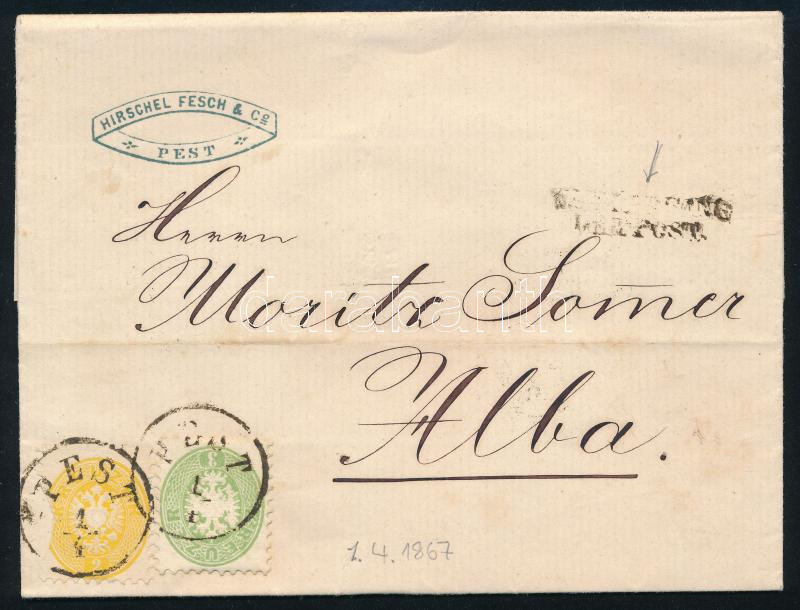 HIRSCHEL FESCH & Cº
PEST
DER POST.
Herrn
Moritz Somer
darabanth
Alba.
PEST
1
4
PEST
1
4
1. 4. 1867